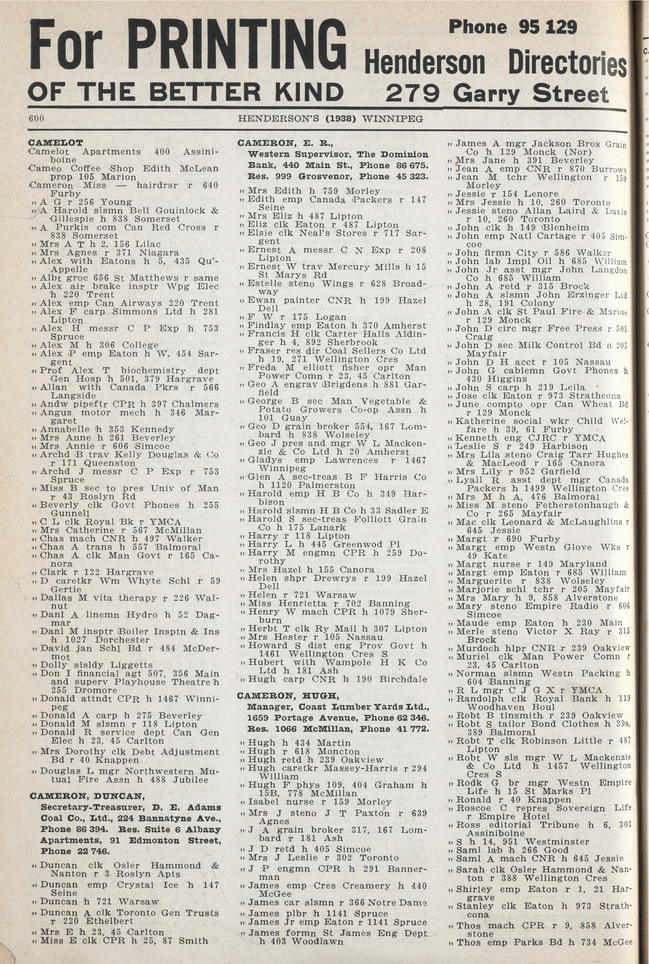 For PRINTING
OF THE BETTER KIND
Phone 95 129
Henderson Directories
279 Garry Street
600
HENDERSON'S (1938) WINNIPEG
CAMELOT
Camelot Apartments 400 Assini-
boine
Cameo Coffee Shop Edith McLean
prop 105 Marion
Cameron Miss — hairdrsr r 640
Furby
„ A G r 256 Young
„ A Harold slsmn Bell Gouinlock &
Gillespie h 838 Somerset
„ A Purkis com Can Red Cross r
838 Somerset
„ Mrs A T h 2, 156 Lilac
„ Mrs Agnes r 371 Niagara
„ Alex with Eatons h 5, 435 Qu'-
Appelle
„ Albt groc 656 St Matthews r same
„ Alex air brake insptr Wpg Elec
h 220 Trent
„ Alex emp Can Airways 220 Trent
„ Alex F carp Simmons Ltd h 281
Lipton
„ Alex H messr C P Exp h 753
Spruce
„ Alex M h 306 College
„ Alex P emp Eaton h W, 454 Sar-
gent
„ Prof Alex T biochemistry dept
Gen Hosp h 501, 379 Hargrave
„ Allan with Canada Pkrs r 566
Langside
„ Andw pipeftr CPR h 397 Chalmers
„ Angus motor mech h 346 Mar-
garet
„ Annabelle h 353 Kennedy
„ Mrs Anne h 261 Beverley
„ Mrs Annie r 606 Simcoe
„ Archd B trav Kelly Douglas & Co
r 171 Queenston
„ Archd J messr C P Exp r 753
Spruce
„ Miss B sec to pres Univ of Man
r 43 Roslyn Rd
„ Beverly clk Govt Phones h 255
Gunnell
„ C L clk Royal Bk r YMCA
„ Mrs Catherine r 567 McMillan
„ Chas mach CNR h 497 Walker
„ Chas A trans h 557 Balmoral
„ Chas A clk Man Govt r 165 Ca-
nora
„ Clark r 122 Hargrave
„ D caretkr Wm Whyte Schl r 59
Gertie
„ Dallas M vita therapy r 226 Wal-
nut
„ Danl A linemn Hydro h 52 Dag-
mar
„ Danl M insptr Boiler Insptn & Ins
h 1027 Dorchester
„ David jan Schl Bd r 484 McDer-
mot
„ Dolly slsldy Liggetts
„ Don I financial agt 507, 356 Main
and superv Playhouse Theatre h
255 Dromore
„ Donald attndt CPR h 1467 Winni-
peg
„ Donald A carp h 275 Beverley
„ Donald M slsmn r 118 Lipton
„ Donald R service dept Can Gen
Elec h 23, 45 Carlton
„ Mrs Dorothy clk Debt Adjustment
Bd r 40 Knappen
„ Douglas L mgr Northwestern Mu-
tual Fire Assn h 488 Jubilee
CAMERON, DUNCAN,
Secretary-Treasurer, D. E. Adams
Coal Co., Ltd., 224 Bannatyne Ave.,
Phone 86 394. Res. Suite 6 Albany
Apartments, 91 Edmonton Street,
Phone 22 746.
„ Duncan clk Osler Hammond &
Nanton r 3 Roslyn Apts
„ Duncan emp Crystal Ice h 147
Seine
„ Duncan h 721 Warsaw
„ Duncan A clk Toronto Gen Trusts
r 220 Ethelbert
„ Mrs E h 23, 45 Carlton
„ Miss E clk CPR h 25, 87 Smith
CAMERON, E. R.,
Western Supervisor, The Dominion
Bank, 440 Main St., Phone 86 675.
Res. 999 Grosvenor, Phone 45 323.
„ Mrs Edith h 759 Morley
„ Edith emp Canada Packers r 147
Seine
„ Mrs Eliz h 487 Lipton
„ Eliz clk Eaton r 487 Lipton
„ Elsie clk Neal's Stores r 717 Sar-
gent
„ Ernest A messr C N Exp r 208
Lipton
„ Ernest W trav Mercury Mills h 15
St Marys Rd
„ Estelle steno Wings r 628 Broad-
way
„ Ewan painter CNR h 199 Hazel
Dell
„ F W r 175 Logan
„ Findlay emp Eaton h 370 Amherst
„ Francis H clk Carter Halls Aldin-
ger h 4, 892 Sherbrook
„ Fraser res dir Coal Sellers Co Ltd
h 19, 271 Wellington Cres
„ Freda M elliott fisher opr Man
Power Comn r 23, 45 Carlton
„ Geo A engrav Brigdens h 881 Gar-
field
„ George B sec Man Vegetable &
Potato Growers Co-op Assn h
101 Guay
„ Geo D grain broker 554, 167 Lom-
bard h 838 Wolseley
„ Geo J pres and mgr W L Macken-
zie & Co Ltd h 20 Amherst
„ Gladys emp Lawrences r 1467
Winnipeg
„ Glen A sec-treas B F Harris Co
h 1120 Palmerston
„ Harold emp H B Co h 349 Har-
bison
„ Harold slsmn H B Co h 33 Sadler E
„ Harold S sec-treas Folliott Grain
Co h 175 Lanark
„ Harry r 118 Lipton
„ Harry L h 445 Greenwood Pl
„ Harry M engmn CPR h 259 Do-
rothy
„ Mrs Hazel h 155 Canora
„ Helen shpr Drewrys r 199 Hazel
Dell
„ Helen r 721 Warsaw
„ Miss Henrietta r 702 Banning
„ Henry W mach CPR h 1079 Sher-
burn
„ Herbt T clk Ry Mail h 307 Lipton
„ Mrs Hester r 105 Nassau
„ Howard S dist eng Prov Govt h
1461 Wellington Cres S
„ Hubert with Wampole H K Co
Ltd h 181 Ash
„ Hugh carp CNR h 190 Birchdale
CAMERON, HUGH,
Manager, Coast Lumber Yards Ltd.,
1659 Portage Avenue, Phone 62 346.
Res. 1066 McMillan, Phone 41 772.
„ Hugh h 434 Martin
„ Hugh r 618 Moncton
„ Hugh retd h 239 Oakview
„ Hugh caretkr Massey-Harris r 294
William
„ Hugh F phys 109, 404 Graham h
15B, 778 McMillan
„ Isabel nurse r 159 Morley
„ Mrs J steno J T Paxton r 639
Agnes
„ J A grain broker 317, 167 Lom-
bard r 181 Ash
„ J D retd h 405 Simcoe
„ Mrs J Leslie r 302 Toronto
„ J P engmn CPR h 291 Banner-
man
„ James emp Cres Creamery h 440
McGee
„ James car slsmn r 366 Notre Dame
„ James plbr h 1141 Spruce
„ James Jr emp Eaton r 1141 Spruce
„ James formn St James Eng Dept
h 403 Woodlawn
„ James A mgr Jackson Bros Grain
Co h 129 Monck (Nor)
„ Mrs Jane h 391 Beverley
„ Jean A emp CNR r 870 Burrows
„ Jean M tchr Wellington r 159
Morley
„ Jessie r 154 Lenore
„ Mrs Jessie h 10, 260 Toronto
„ Jessie steno Allan Laird & Davis
r 10, 260 Toronto
„ John clk h 149 Blenheim
„ John emp Natl Cartage r 405 Sim-
coe
„ John firmn City r 586 Walker
„ John lab Impl Oil h 685 William
„ John Jr asst mgr John Langdon
Co h 685 William
„ John A retd r 315 Brock
„ John A slsmn John Erzinger Ltd
h 28, 191 Colony
„ John A clk St Paul Fire & Marine
r 129 Monck
„ John D circ mgr Free Press r 501
Craig
„ John D sec Milk Control Bd n 205
Mayfair
„ John D H acct r 105 Nassau
„ John G cablemn Govt Phones h
430 Higgins
„ John S carp h 219 Leila
„ Jose clk Eaton r 973 Strathcona
„ June compto opr Can Wheat Bd
r 129 Monck
„ Katherine social wkr Child Wel-
fare h 39, 61 Furby
„ Kenneth eng CJRC r YMCA
„ Leslie S r 249 Harbison
„ Mrs Lila steno Craig Tarr Hughes
& MacLeod r 165 Canora
„ Mrs Lily r 952 Garfield
„ Lyall R asst dept mgr Canada
Packers h 1499 Wellington Cres
„ Mrs M h A, 476 Balmoral
„ Miss M steno Fetherstonhaugh &
Co r 265 Mayfair
„ Mac clk Leonard & McLaughlins r
645 Jessie
„ Margt r 690 Furby
„ Margt emp Westn Glove Wks r
49 Kate
„ Margt nurse r 149 Maryland
„ Margt emp Eaton r 685 William
„ Marguerite r 838 Wolseley
„ Marjorie schl tchr r 205 Mayfair
„ Mrs Mary h 9, 858 Alverstone
„ Mary steno Empire Radio r 606
Simcoe
„ Maude emp Eaton h 230 Main
„ Merle steno Victor X Ray r 315
Brock
„ Murdoch hlpr CNR r 239 Oakview
„ Muriel clk Man Power Comn r
23, 45 Carlton
„ Norman slsmn Westn Packing h
604 Banning
„ R L mgr C J G X r YMCA
„ Randolph clk Royal Bank h 119
Woodhaven Boul
„ Robt B tinsmith r 239 Oakview
„ Robt S tailor Bond Clothes h 39a,
389 Balmoral
„ Robt T clk Robinson Little r 487
Lipton
„ Robt W sls mgr W L Mackenzie
& Co Ltd h 1457 Wellington
Cres S
„ Rodk G br mgr Westn Empire
Life h 15 St Marks Pl
„ Ronald r 40 Knappen
„ Roscoe C repres Sovereign Life
r Empire Hotel
„ Ross editorial Tribune h 6, 303
Assiniboine
„ S h 14, 951 Westminster
„ Saml lab h 266 Good
„ Saml A mach CNR h 645 Jessie
„ Sarah clk Osler Hammond & Nan-
ton r 388 Wellington Cres
„ Shirley emp Eaton r 1, 21 Har-
grave
„ Stanley clk Eaton h 973 Strath-
cona
„ Thos mach CPR r 9, 858 Alver-
stone
„ Thos emp Parks Bd h 734 McGee